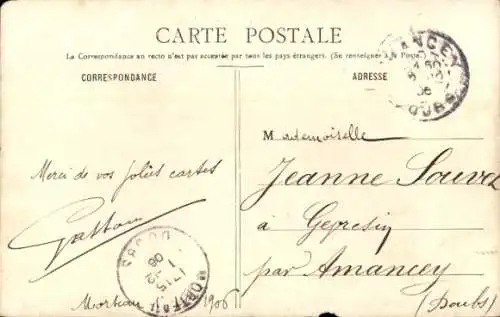 CARTE POSTALE
La Correspondance au recto n'est pas acceptée par tous les pays étrangers. (Se renseigner à la Poste.)
CORRESPONDANCE
ADRESSE
AMANCEY
DOUBS
Merci de vos jolies cartes
Gaston
Morteau 1906
MORTEAU
17-15
1
-12
06
DOUBS
Mademoiselle
Jeanne
à
par Amancey
(Doubs)